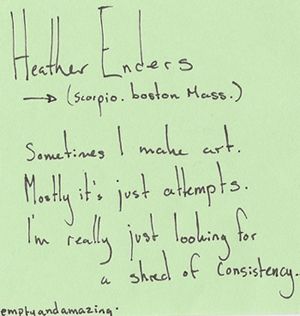 Heather Enders
→ (Scorpio. boston Mass.)
Sometimes I make art.
Mostly it's just attempts.
I'm really just looking for
a shred of consistency.
emptyandamazing.